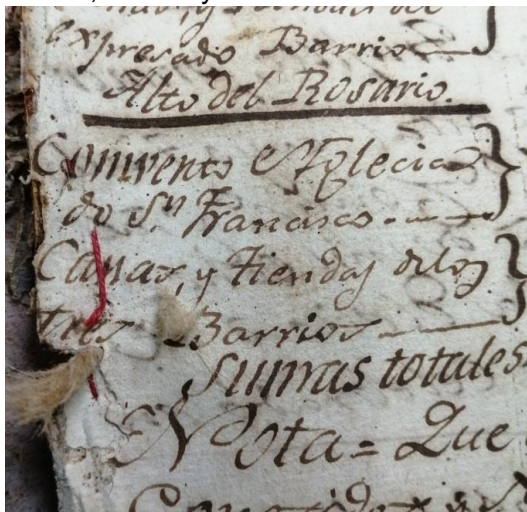 expresado Barrio
Alto del Rosario.
Comvento E Yglecia
de Sn. Francisco.
Casas, y Tiendas delos
tres Barrios
Sumas totales
Nota = Que